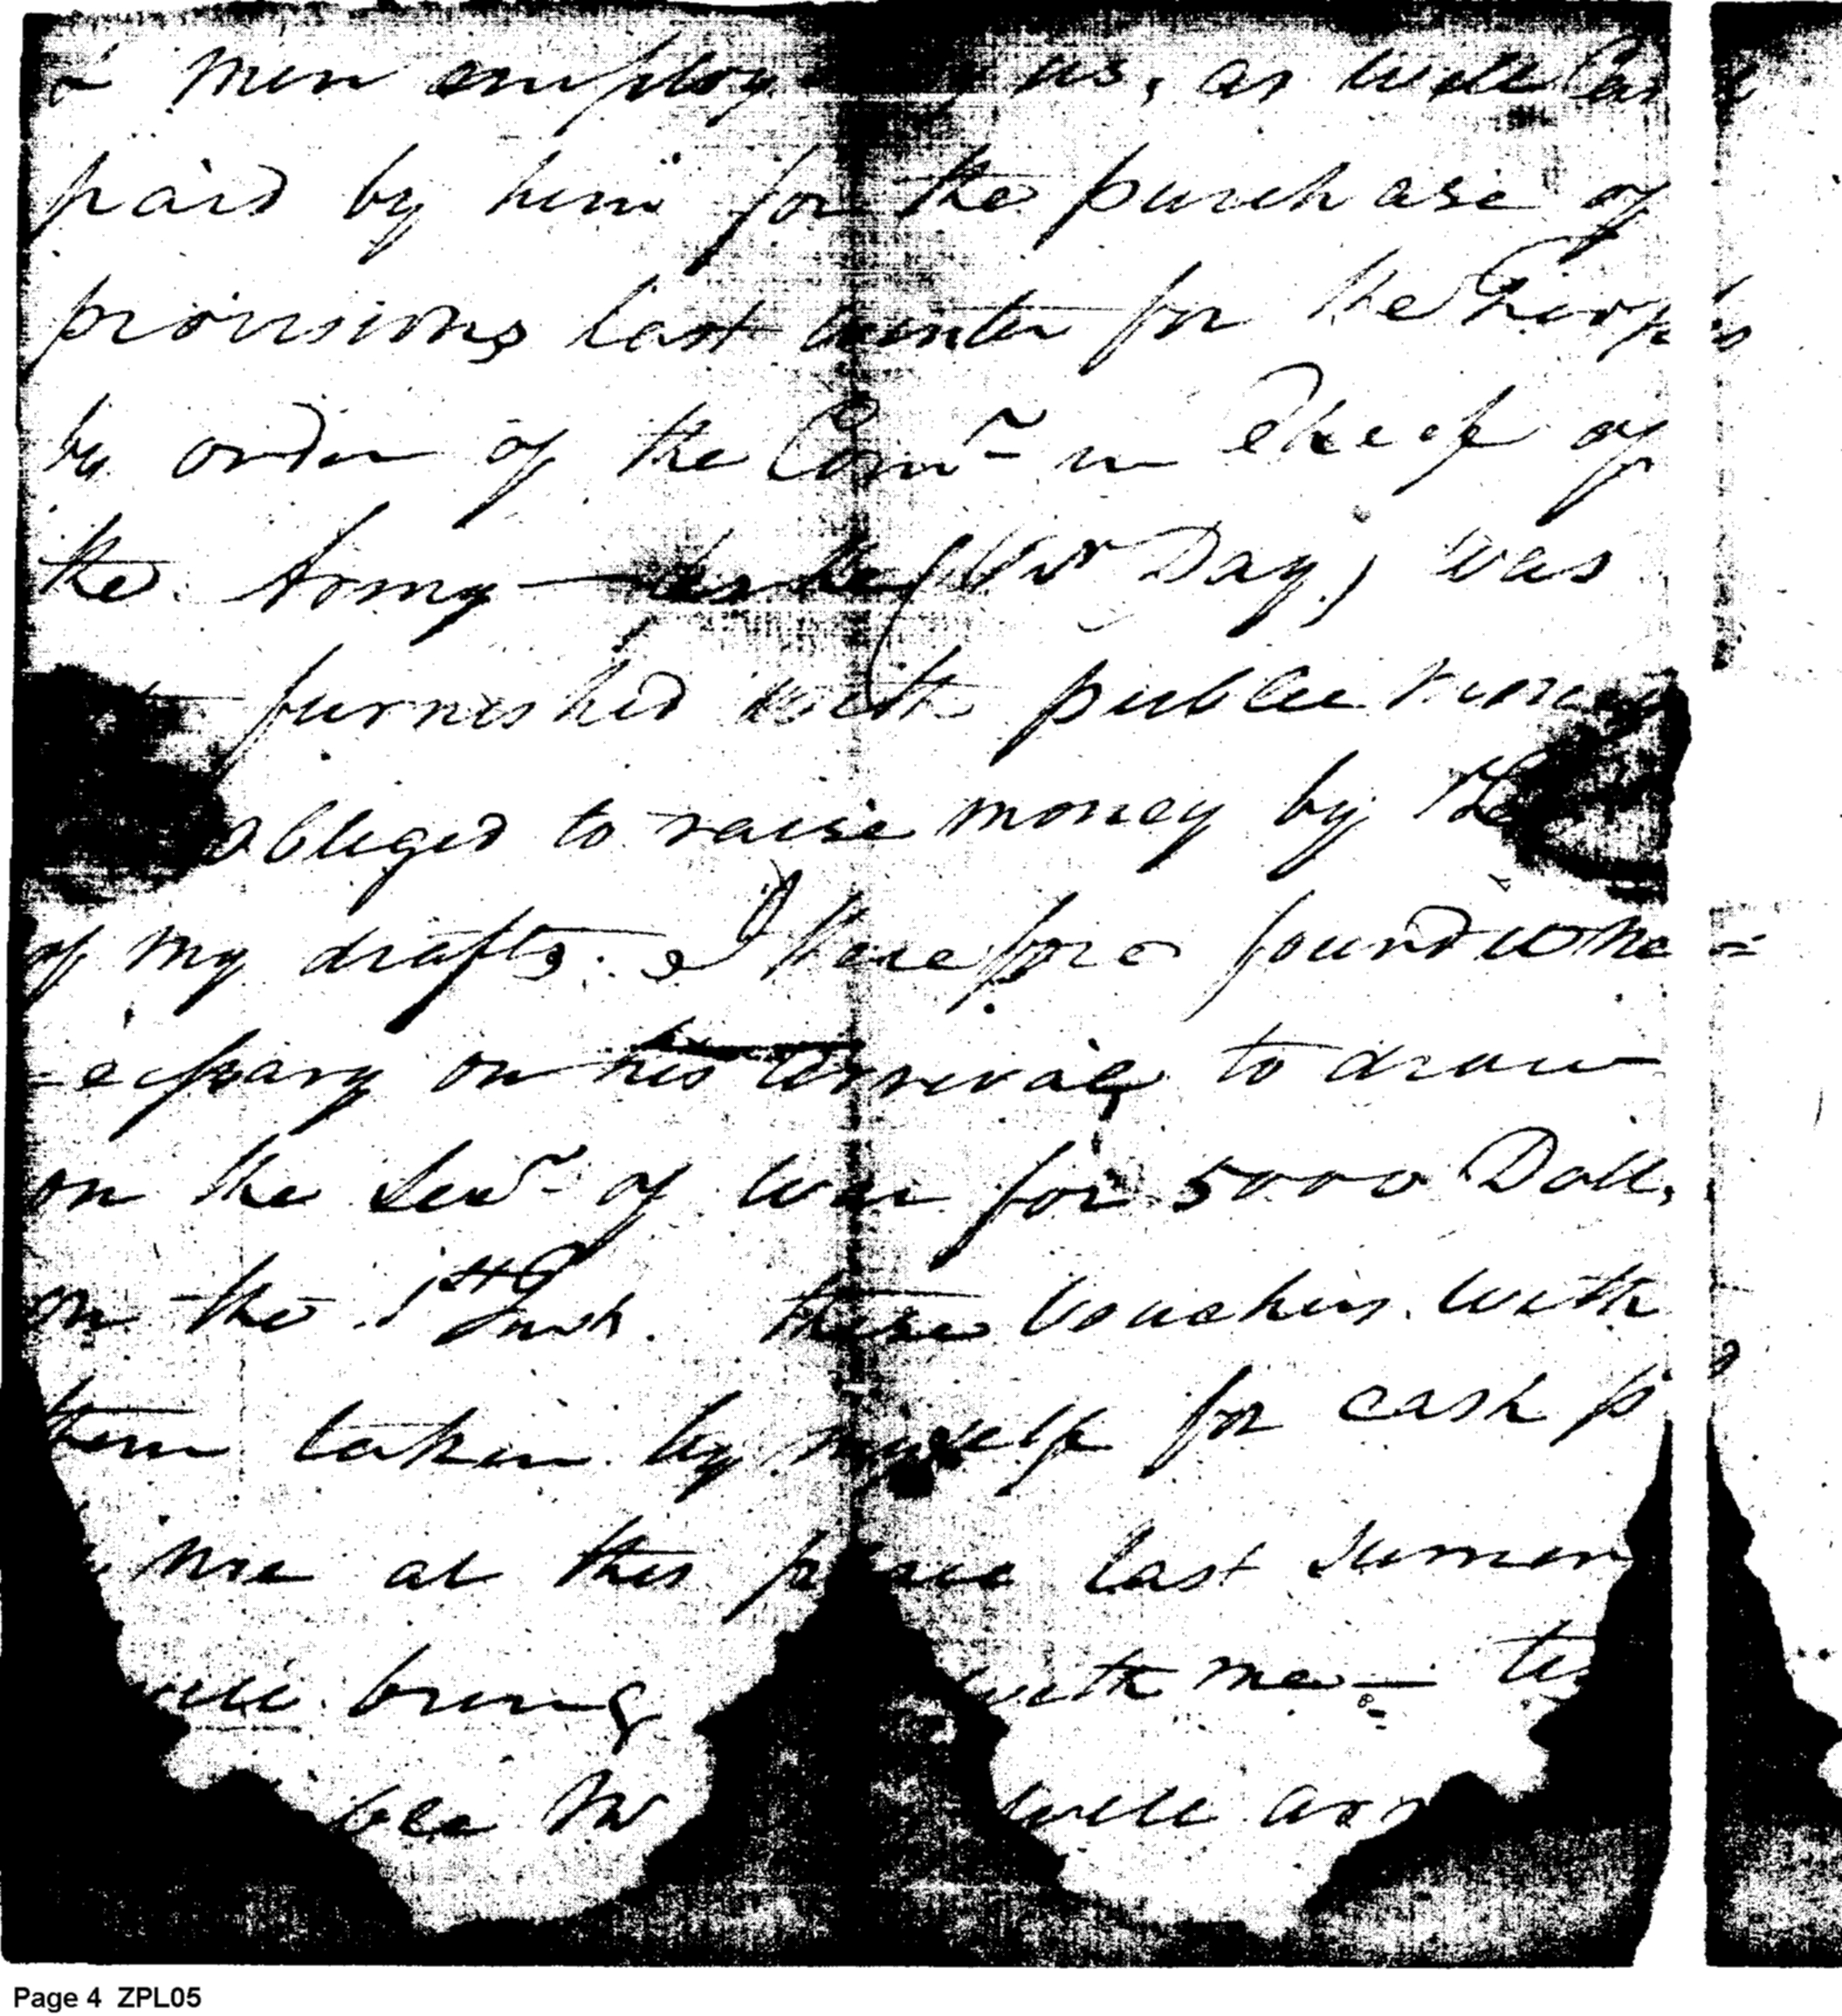 & men employ by us, as well Cas
paid by him for the purchase of
provisions last winter for the Troops
by order of the Comr in Cheif of
the Army — as he (Mr Day) was
furnished with public money
obliged to raise money by the
of my drafts. I therefore found it ne=
=cessary on his arrival, to draw
on the Secy of War for 5000 Doll,
on the 1st Inst. these Vouchers with
them taken by myself for cash p
me at this place last Sumer
will bring with me —
ble M will
Page 4 ZPL05